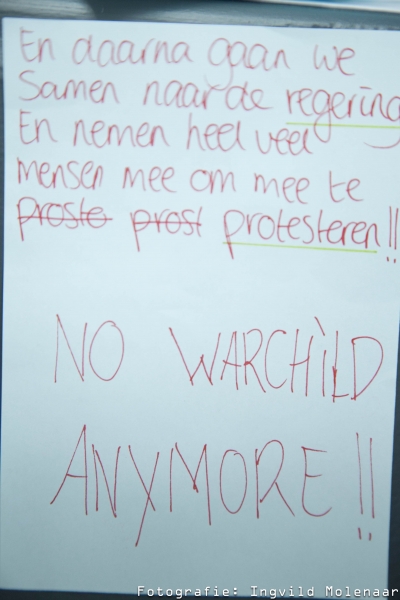 En daarna gaan we
Samen naar de regering
En nemen heel veel
mensen mee om mee te
proste prost protesteren!!
NO WARCHILD
ANYMORE!!
Fotografie: Ingvild Molenaar